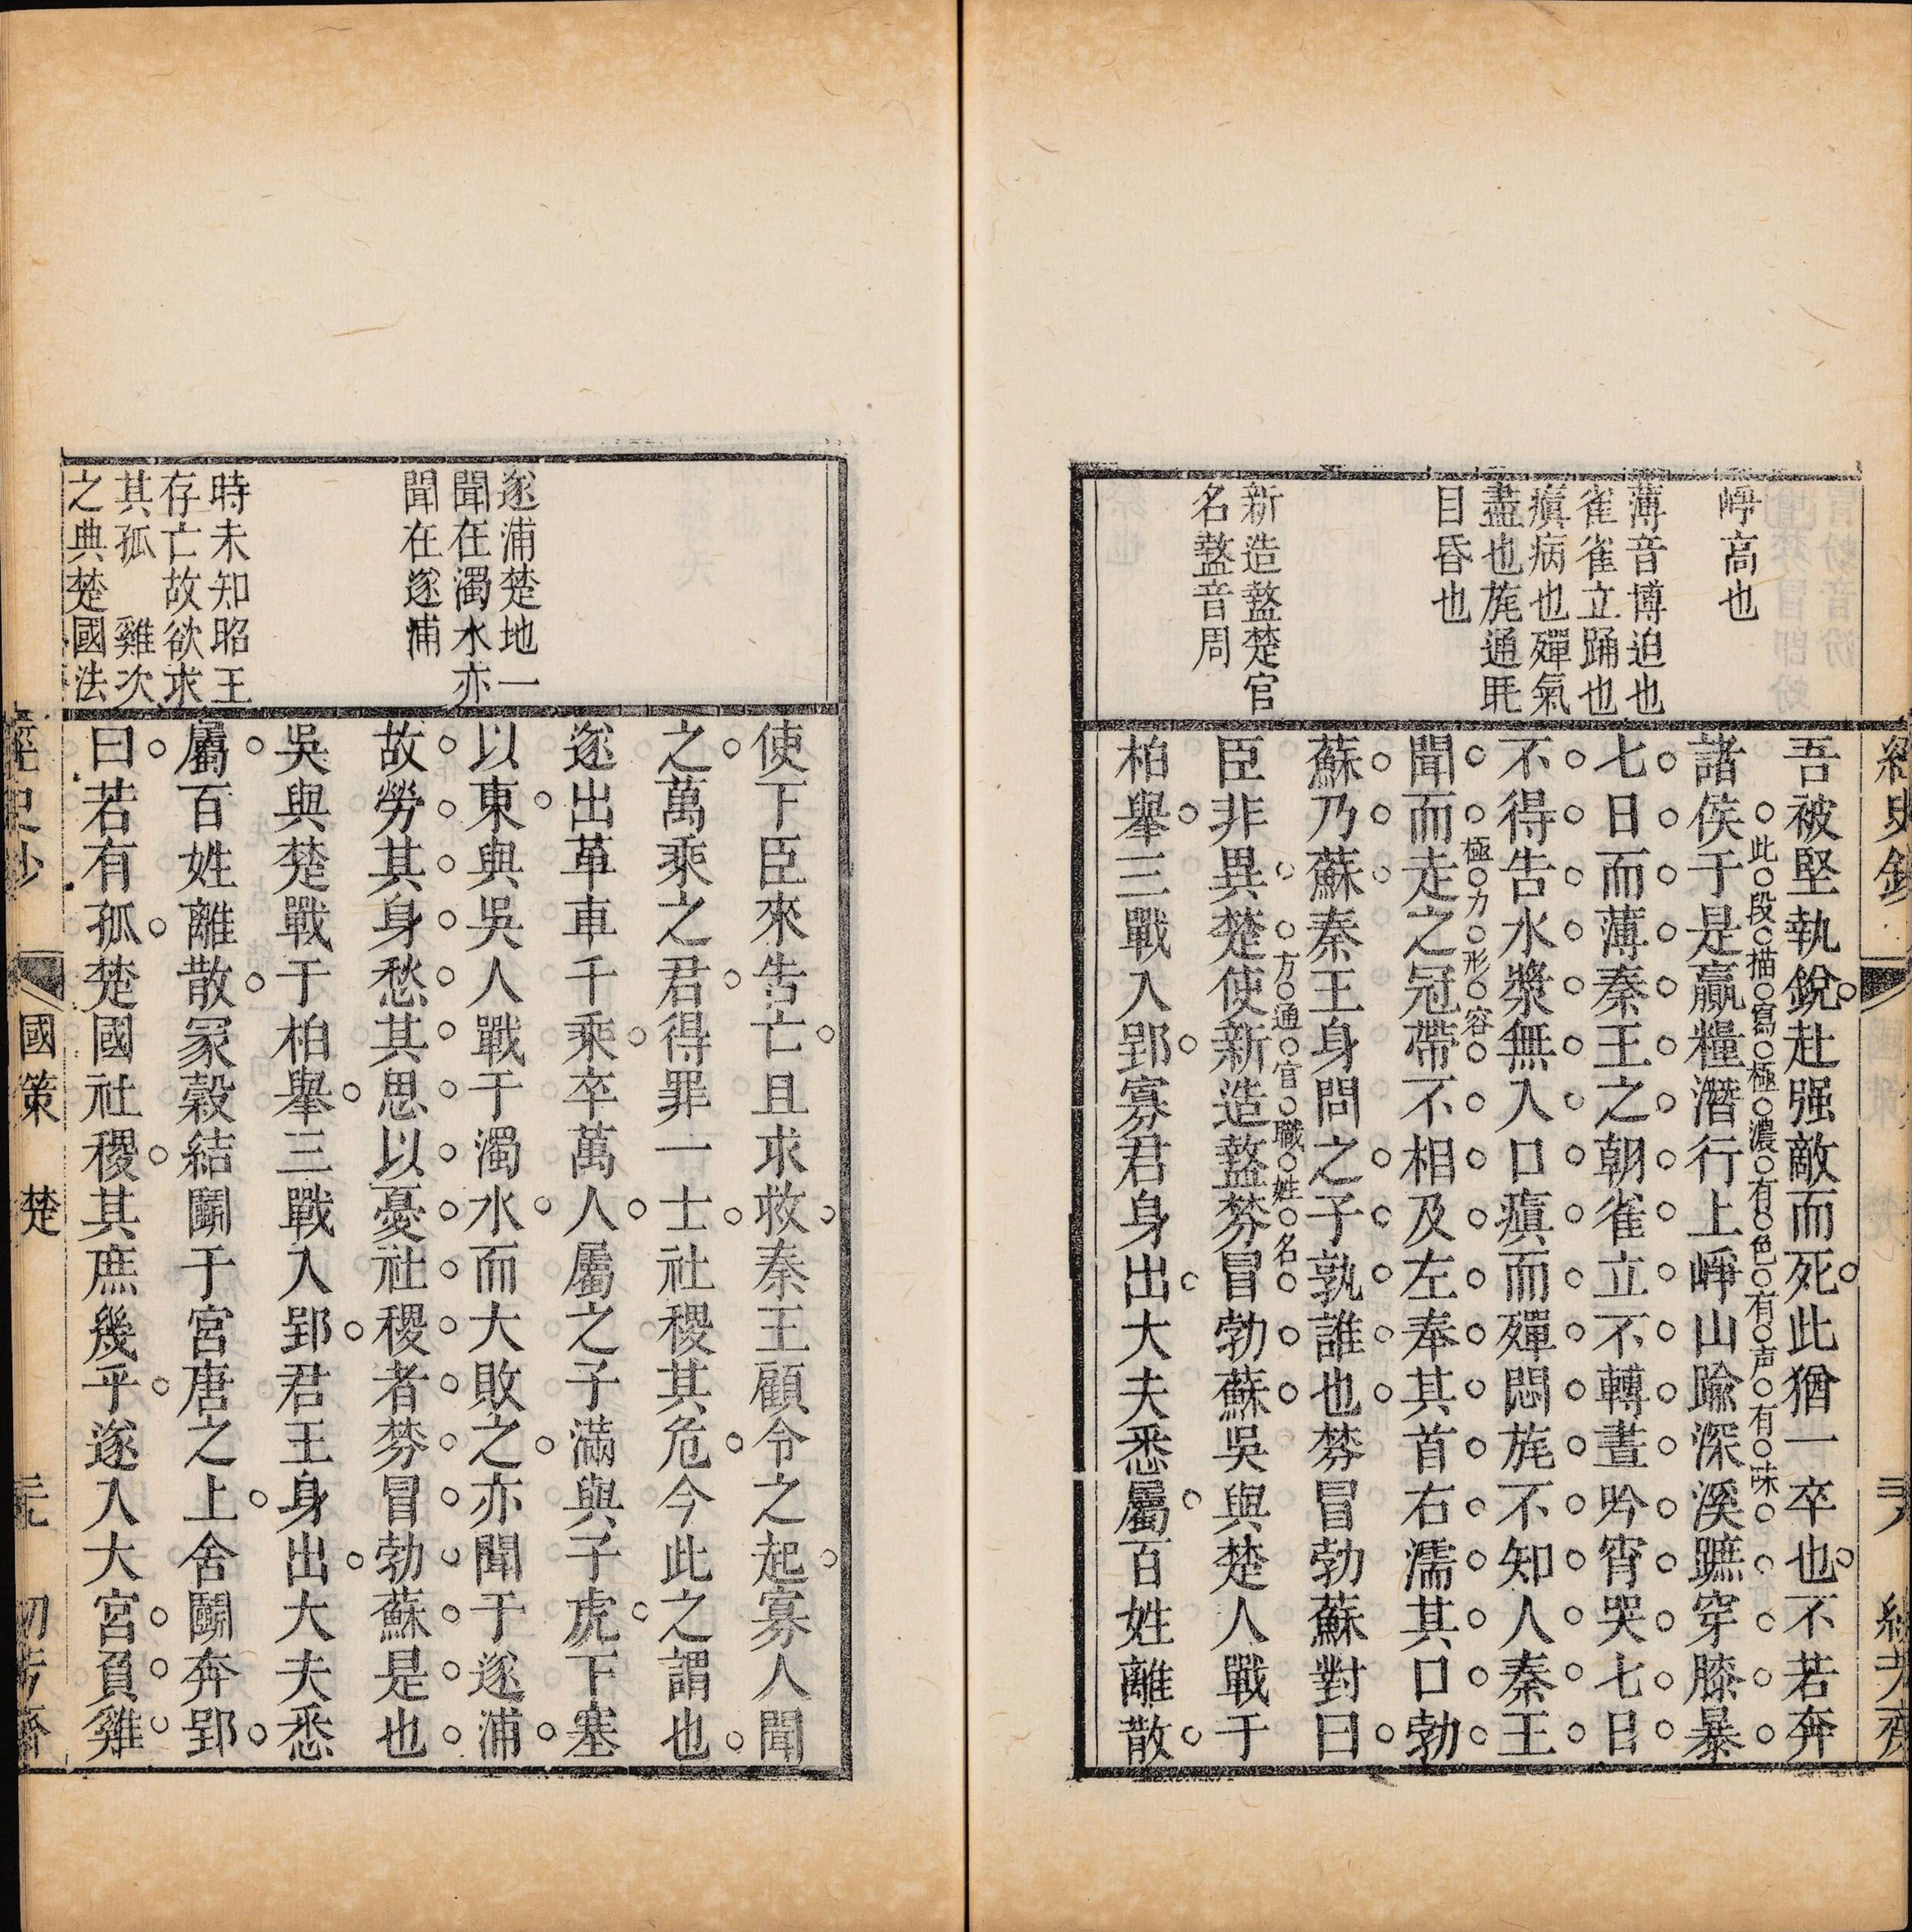 崢高也
薄音博迫也
雀雀立踊也
瘨病也殫氣
盡也旄通眊
目昏也
新造盩楚官
名盩音周
吾被堅執銳赴强敵而死此猶一卒也不若奔
諸侯于是贏糧潛行上崢山踰深溪蹠穿膝暴
此段描寫極濃有色有声有味
七日而薄秦王之朝雀立不轉晝吟宵哭七日
不得告水漿無入口瘨而殫悶旄不知人秦王
聞而走之冠帶不相及左奉其首右濡其口勃
極力形容
蘇乃蘇秦王身問之子孰誰也棼冒勃蘇對曰
臣非異楚使新造盩棼冒勃蘇吳與楚人戰于
方通官職姓名
柏舉三戰入郢寡君身出大夫悉屬百姓離散
遂浦楚地一
聞在濁水亦
聞在遂浦
時未知昭王
存亡故欲求
其孤 雞次
之典楚國法
使下臣來告亡且求救秦王顧令之起寡人聞
之萬乘之君得罪一士社稷其危今此之謂也
遂出革車千乘卒萬人屬之子滿與子虎下塞
以東與吳人戰于濁水而大敗之亦聞于遂浦
故勞其身愁其思以憂社稷者棼冒勃蘇是也
吳與楚戰于柏舉三戰入郢君王身出大夫悉
屬百姓離散冡穀結鬬于宮唐之上舍鬬奔郢
曰若有孤楚國社稷其庶幾乎遂入大宮負雞
國策 楚